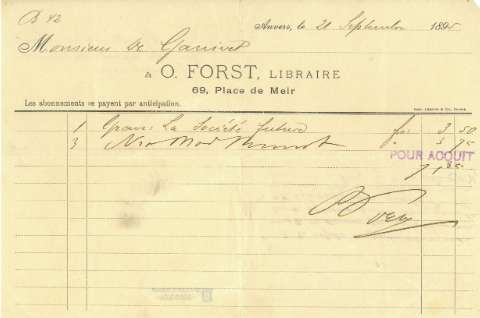 B 42
Anvers, le 21 Septembre 1895
Monsieur de Ganivet
à O. FORST, LIBRAIRE
69, Place de Meir
Les abonnements se payent par anticipation.
1 Grave: La Société future fr: 3 50
3 " 3
POUR ACQUIT
7
O Forst